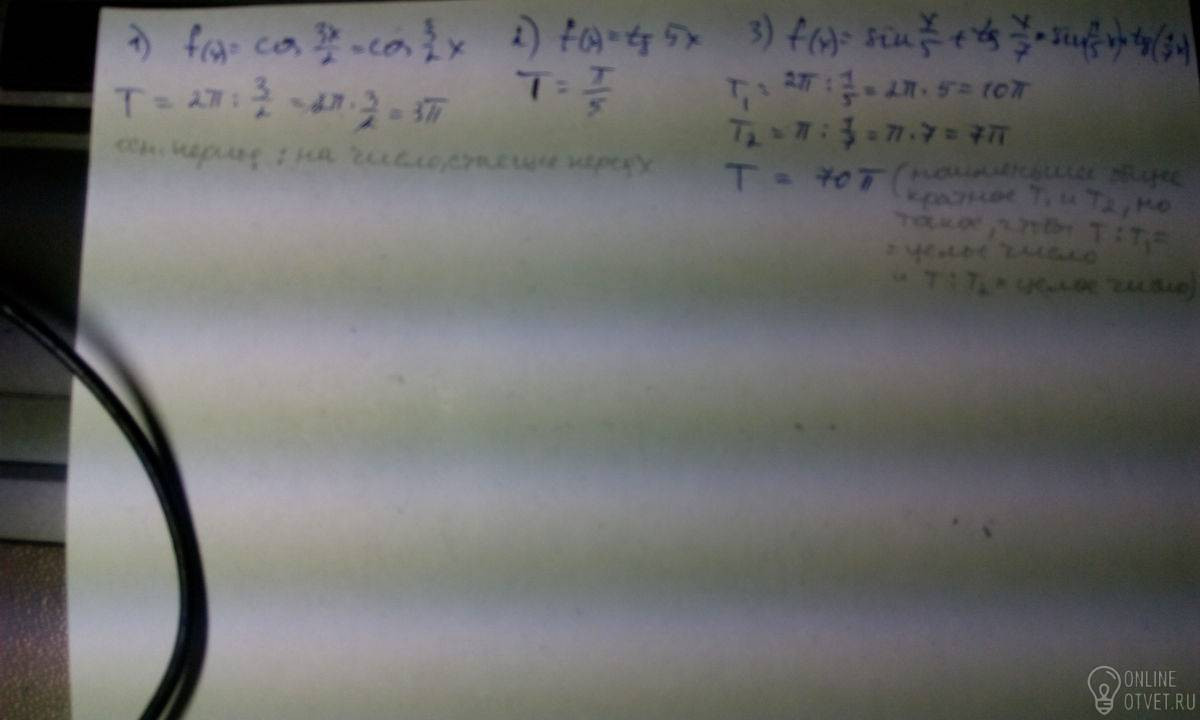 1) f(x)= cos 3x/2 = cos 3/2 x
T = 2π : 3/2 = 2π · 3/2 = 3π
осн. период : на число, стоящее перед x
2) f(x)= tg 5x
T = π/5
3) f(x)= sin x/5 + tg x/7 = sin(1/5 x) + tg(1/7 x)
T₁ = 2π : 1/5 = 2π · 5 = 10π
T₂ = π : 1/7 = π · 7 = 7π
T = 70π (наименьшее общее
кратное T₁ и T₂, но
такое, чтобы T : T₁ =
= целое число
и T : T₂ = целое число)
ONLINE
OTVET.RU